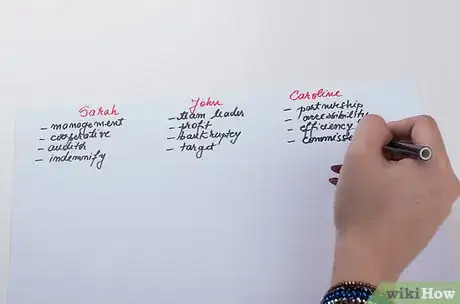 Sarah
- management
- cooperative
- auditor
- indemnify
John
- team leader
- profit
- bankruptcy
- target
Caroline
- partnership
- accessibility
- efficiency
wikiHow